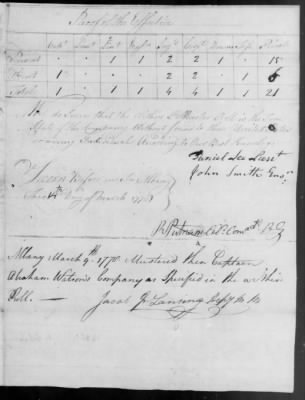 Proof of the Effectives
Capt Lieut Ensn Serjt Corpl Drum & Fife Privat
Present 1 1 2 2 1 15
1 2 2 1 6
Total 1 1 1 4 4 1 1 21
We do Swear that the within Muster Roll is the True
State of the Company without fraud to these United States
according to our Best Knowledge
Daniel Lee Lieut
John Smith Ensn
Sworn Before me In Albany
this 4th Day of March 1778
R Putnam Col Comdt
Albany March 9th 1778 Mustered then Captain
Abraham Watson's Company as Specified in the within
Roll. —
Jacob Jn Lansing Depy M M